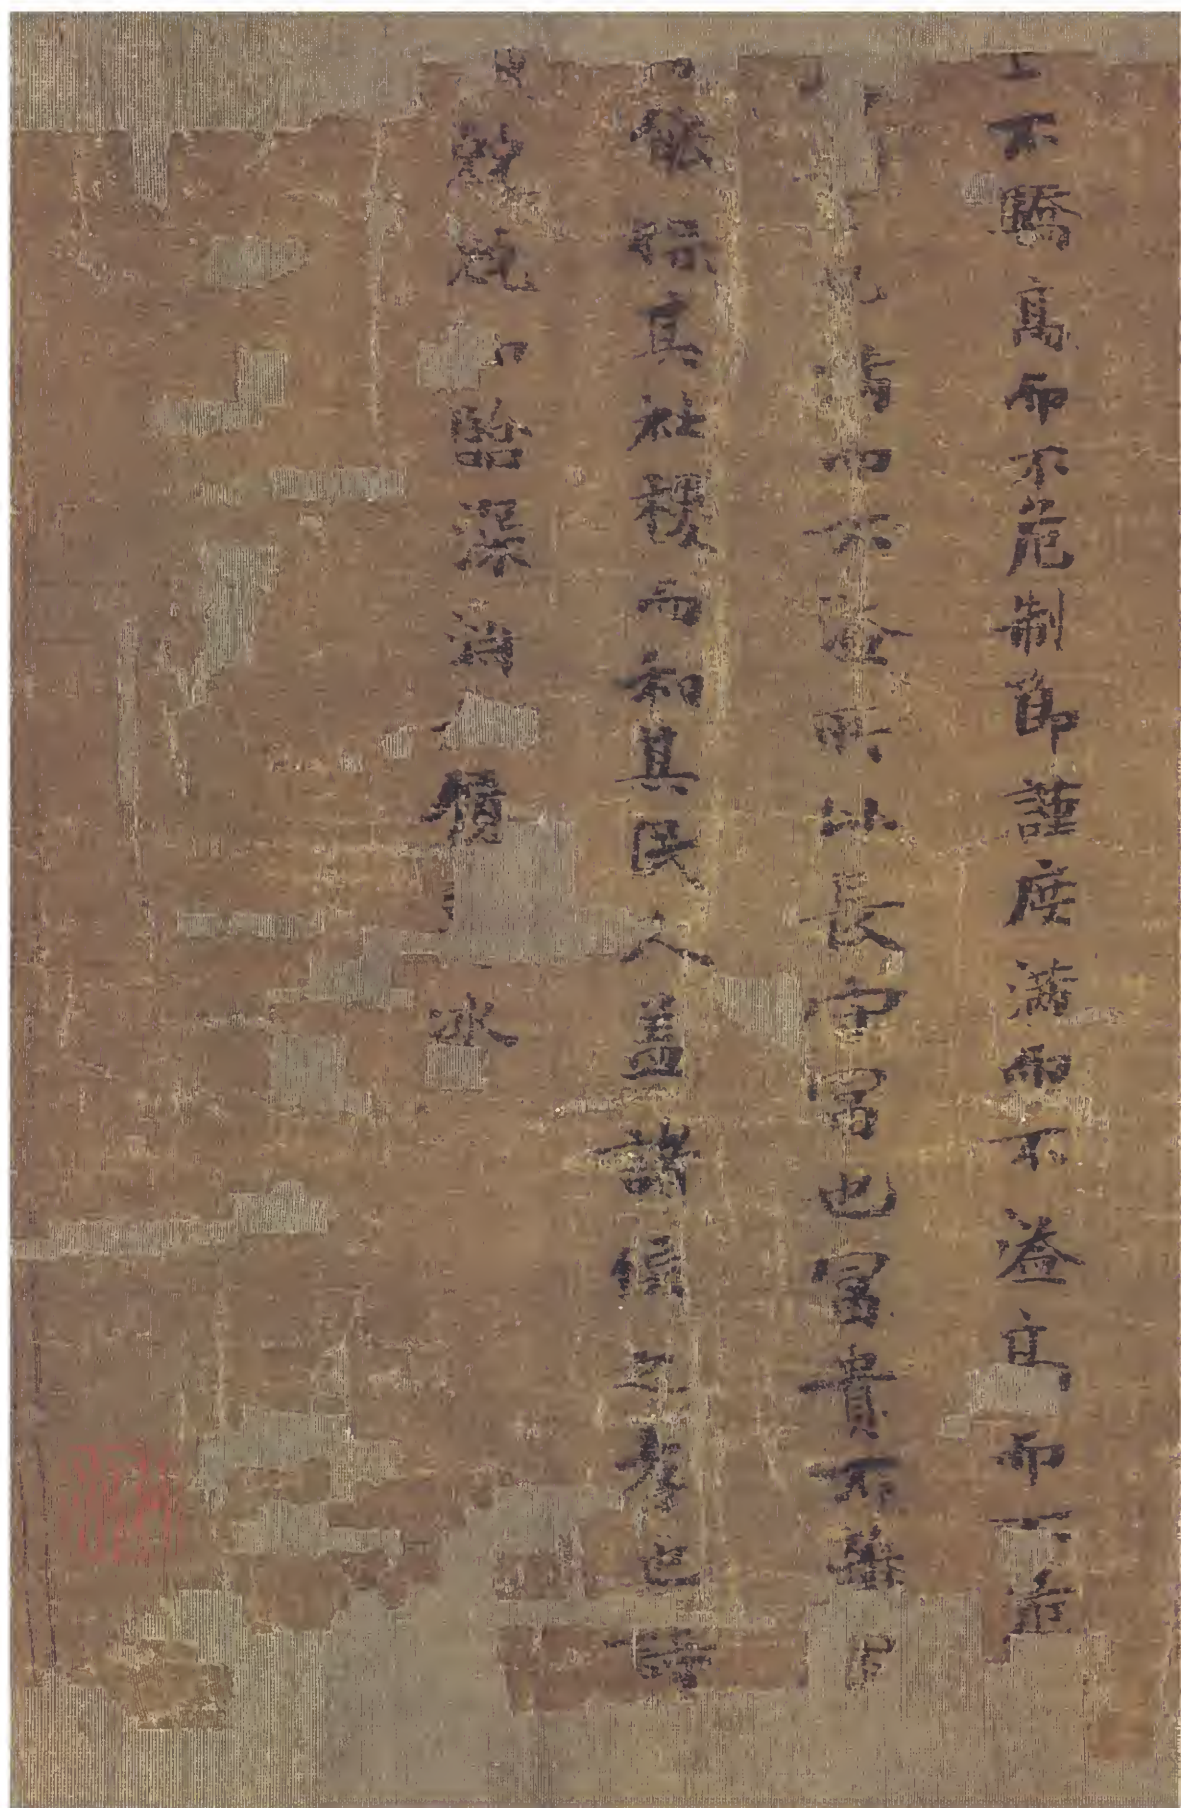 上不驕高而不危制節謹度滿而不溢高而不危
也滿而不溢所以長守富也富貴不離其
能保其社稷而和其民人蓋諸侯之孝也詩
臨深淵履冰